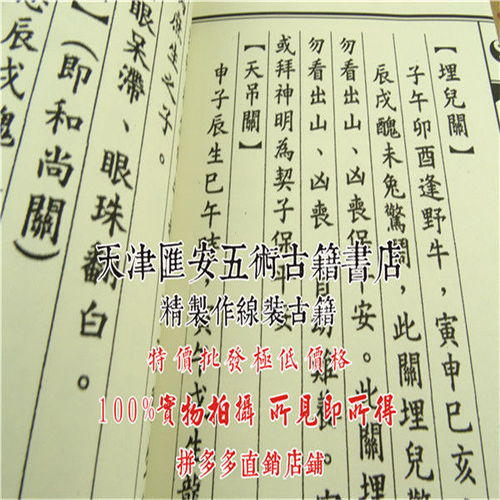 【埋兒關】
子午卯酉逢野牛，寅申巳亥
辰戌醜未兔驚鬧，此關埋兒
勿看出山、凶喪 安。此關埋
勿看出山、凶喪 幼難養。
或拜神明為契子保平安
【天吊關】
申子辰生巳午 午戌生龍
生之子。
眼呆滯、眼珠翻白。
關】（即和尚關）
辰戌醜
天津匯安五術古籍書店
精製作線裝古籍
特價批發極低價格
100%實物拍攝 所見即所得
拼多多直銷店鋪